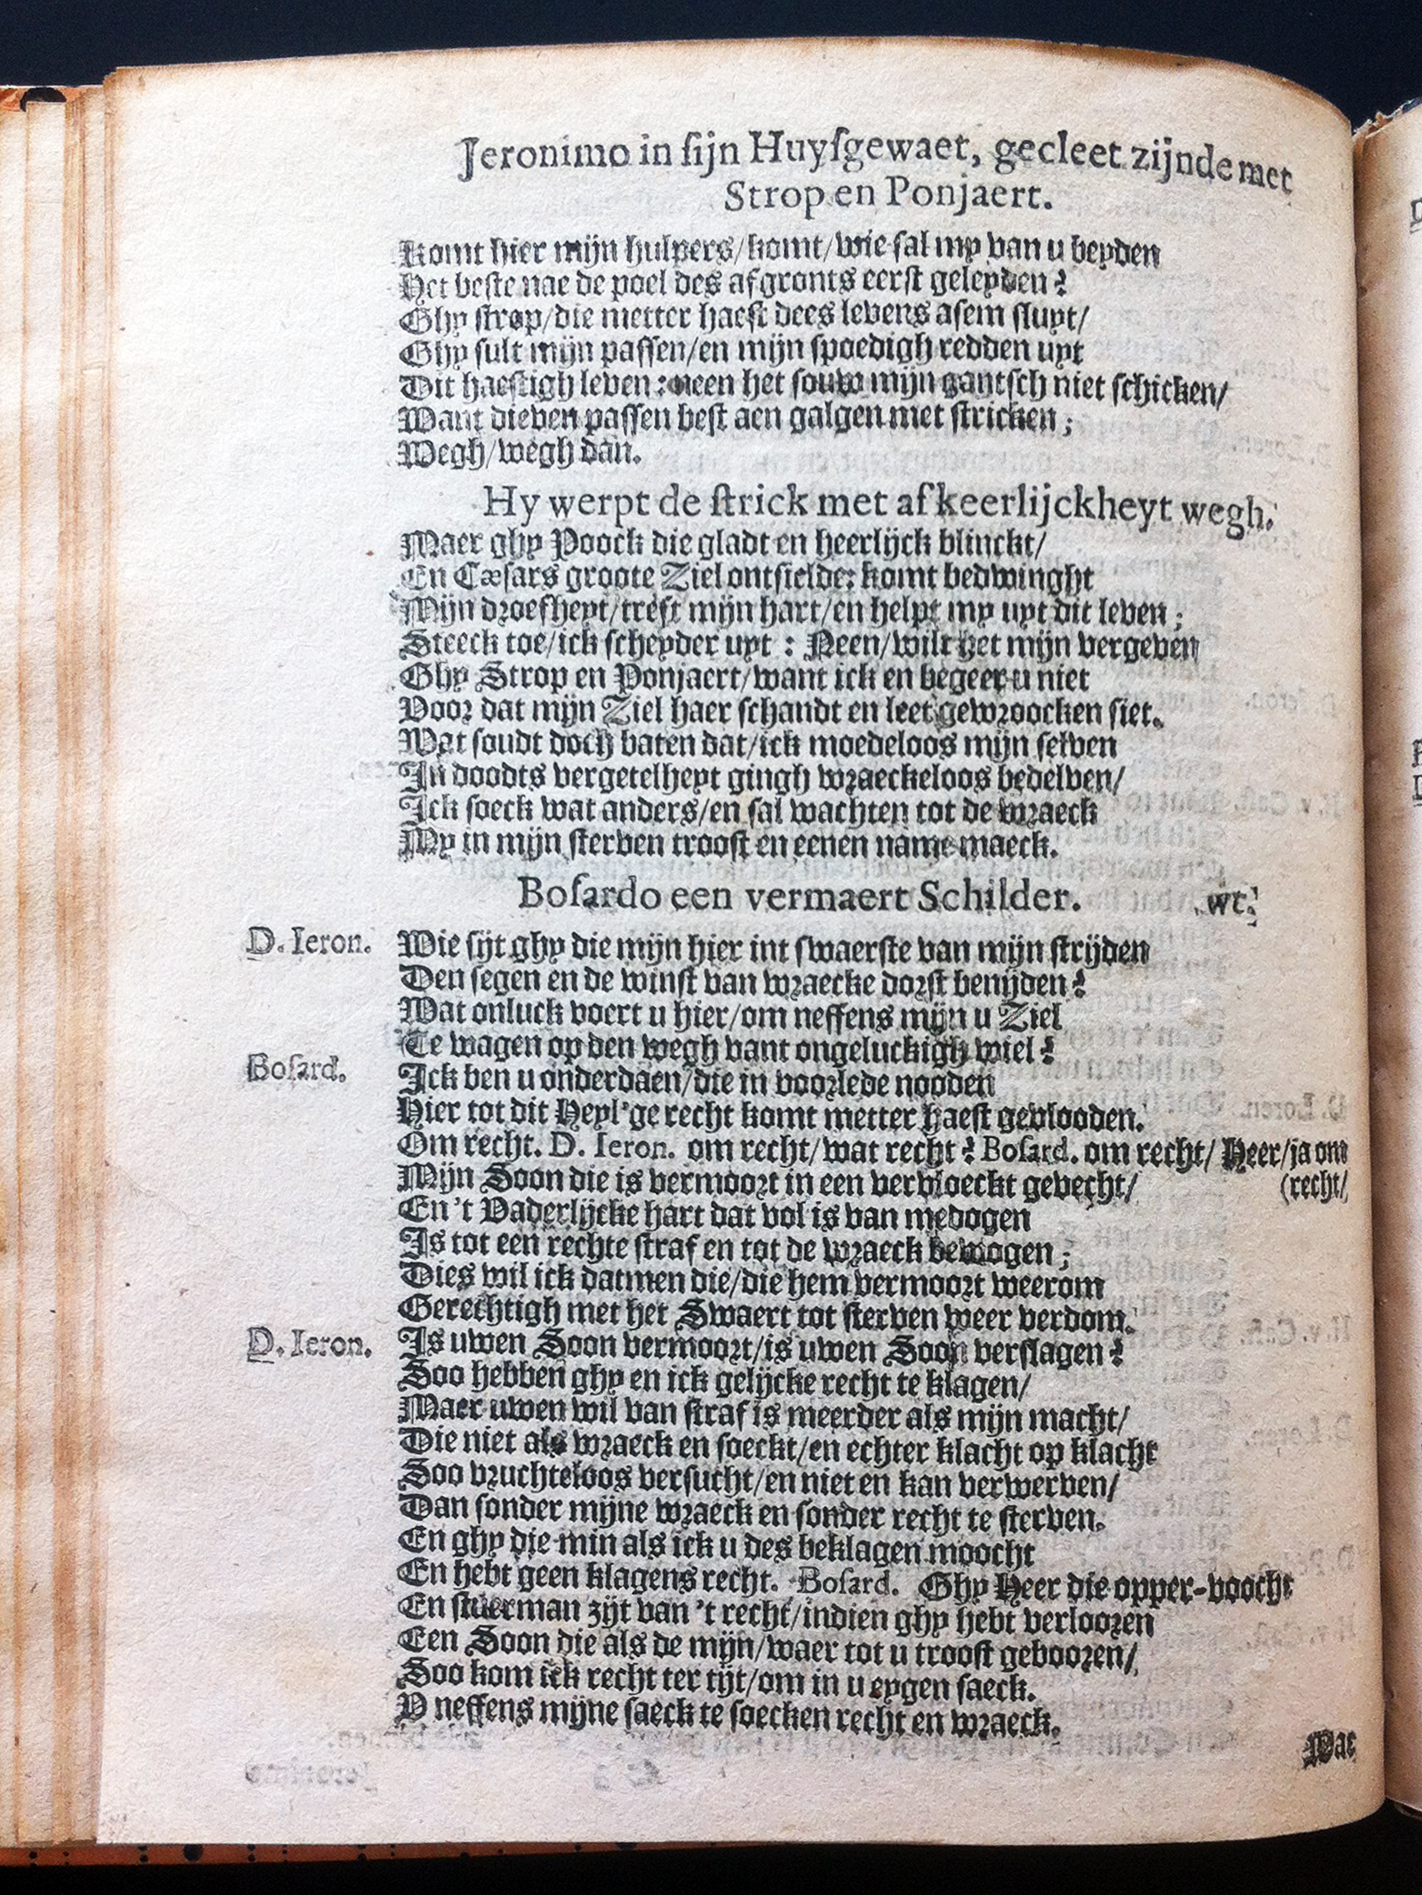 Jeronimo in ſijn Huyſgewaet, gecleet zijnde met
Strop en Ponjaert.
Komt hier mijn hulpers/komt/wie sal my van u beyden
Het beste nae de poel des afgronts eerst geleyden?
Ghy strop/die metter haest dees levens asem sluyt/
Ghy sult mijn passen/en mijn spoedigh redden uyt
Dit haestigh leven: neen het souw mijn gantsch niet schicken/
Want dieven passen best aen galgen met stricken;
Wegh/wegh dan.
Hy werpt de ſtrick met afkeerlijckheyt wegh.
Maer ghy Poock die gladt en heerlijck blinckt/
En Cæsars groote Ziel ontsielde: komt bedwinght
Mijn droefheyt/trest mijn hart/en helpt my uyt dit leven;
Steeck toe/ick scheyder uyt: Neen/wilt het mijn vergeven
Ghy Strop en Ponjaert/want ick en begeer u niet
Voor dat mijn Ziel haer schandt en leet gewroocken siet.
Wat soudt doch baten dat/ick moedeloos mijn selven
In doodts vergetelheyt gingh wraeckeloos bedelven/
Ick soeck wat anders/en sal wachten tot de wraeck
My in mijn sterven troost en eenen name maeck.
Boſardo een vermaert Schilder. wt.
D. Ieron. Wie sijt ghy die mijn hier int swaerste van mijn strijden
Den segen en de winst van wraecke dorst benijden?
Wat onluck voert u hier/om neffens mijn u Ziel
Te wagen op den wegh vant ongeluckigh wiel?
Boſard. Ick ben u onderdaen/die in voorlede nooden
Hier tot dit Heyl'ge recht komt metter haest gevlooden.
Om recht. D. Ieron. om recht/wat recht? Boſard. om recht/Heer/ja om
Mijn Soon die is vermoort in een vervloeckt gevecht/ (recht/
En 't Vaderlijcke hart dat vol is van medogen
Is tot een rechte straf en tot de wraeck bewogen;
Dies wil ick datmen die/die hem vermoort weerom
Gerechtigh met het Swaert tot sterven weer verdom.
D. Ieron. Is uwen Soon vermoort/is uwen Soon verslagen?
Soo hebben ghy en ick gelijcke recht te klagen/
Maer uwen wil van straf is meerder als mijn macht/
Die niet als wraeck en soeckt/en echter klacht op klacht
Soo vruchteloos versucht/en niet en kan verwerven/
Dan sonder mijne wraeck en sonder recht te sterven.
En ghy die min als ick u des beklagen moocht
En hebt geen klagens recht. Boſard. Ghy Heer die opper-voocht
En stuerman zijt van 't recht/indien ghy hebt verloozen
Een Soon die als de mijn/waer tot u troost geboozen/
Soo kom ick recht ter tijt/om in u eygen saeck.
V neffens mijne saeck te soecken recht en wraeck.
Wae